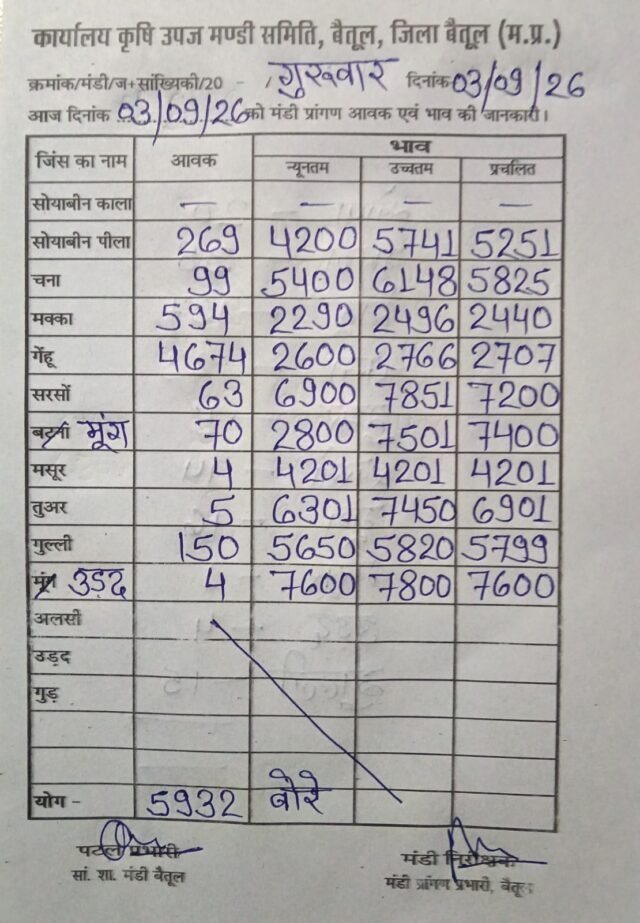 कार्यालय कृषि उपज मण्डी समिति, बैतूल, जिला बैतूल (म.प्र.)
क्रमांक/मंडी/ज+सांख्यिकी/20 - / गुरुवार दिनांक 03/09/26
आज दिनांक 03/09/26 को मंडी प्रांगण आवक एवं भाव की जानकारी।
जिंस का नाम आवक भाव
न्यूनतम उच्चतम प्रचलित
सोयाबीन काला — — — —
सोयाबीन पीला 269 4200 5741 5251
चना 99 5400 6148 5825
मक्का 594 2290 2496 2440
गेंहू 4674 2600 2766 2707
सरसों 63 6900 7851 7200
मूंग 70 2800 7501 7400
मसूर 4 4201 4201 4201
तुअर 5 6301 7450 6901
गुल्ली 150 5650 5820 5799
उड़द 4 7600 7800 7600
अलसी
उड़द
गुड़
योग - 5932 बोरे
प्रभारी मंडी निरीक्षक
सां. शा. मंडी बैतूल मंडी प्रांगण प्रभारी, बैतूल